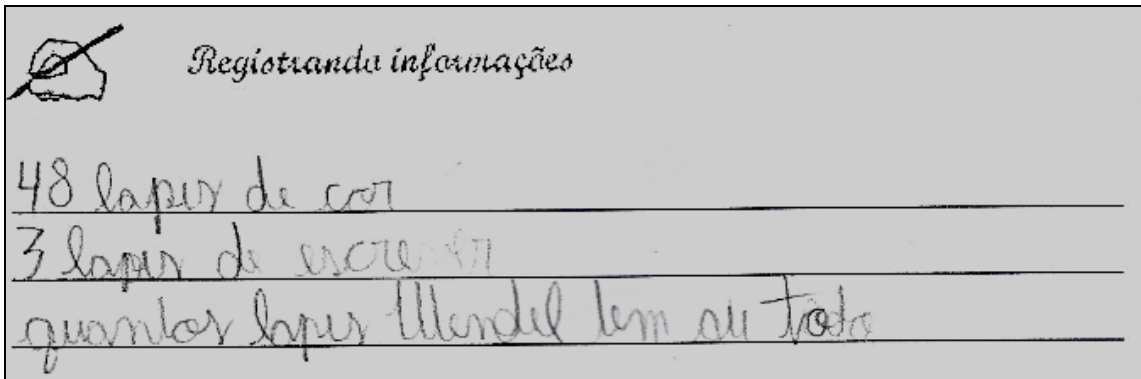 Registrando informações
48 lapis de cor
3 lapis de escrever
quantos lapis Wendel tem au todo